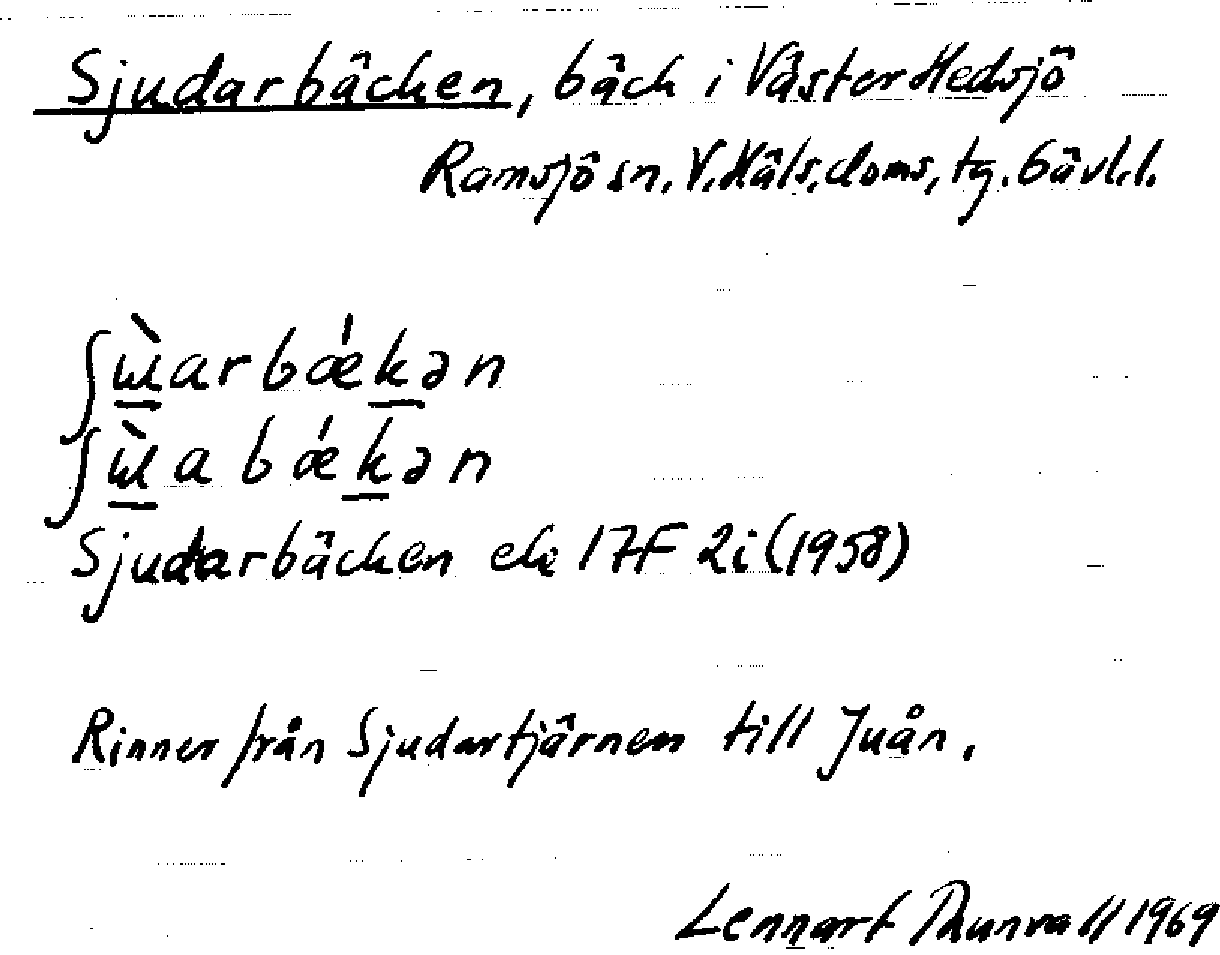 Sjudarbäcken, bäck i Väster Hedsjö
Ramsjö sn. V. Häls. doms. tg. Gävl. l.
ʃɯ̀arbǽkən
ʃɯ̀a bǽkən
Sjudarbäcken ek 17F 2i (1958)
Rinner från Sjudartjärnen till Juån.
Lennart Thunvall 1969